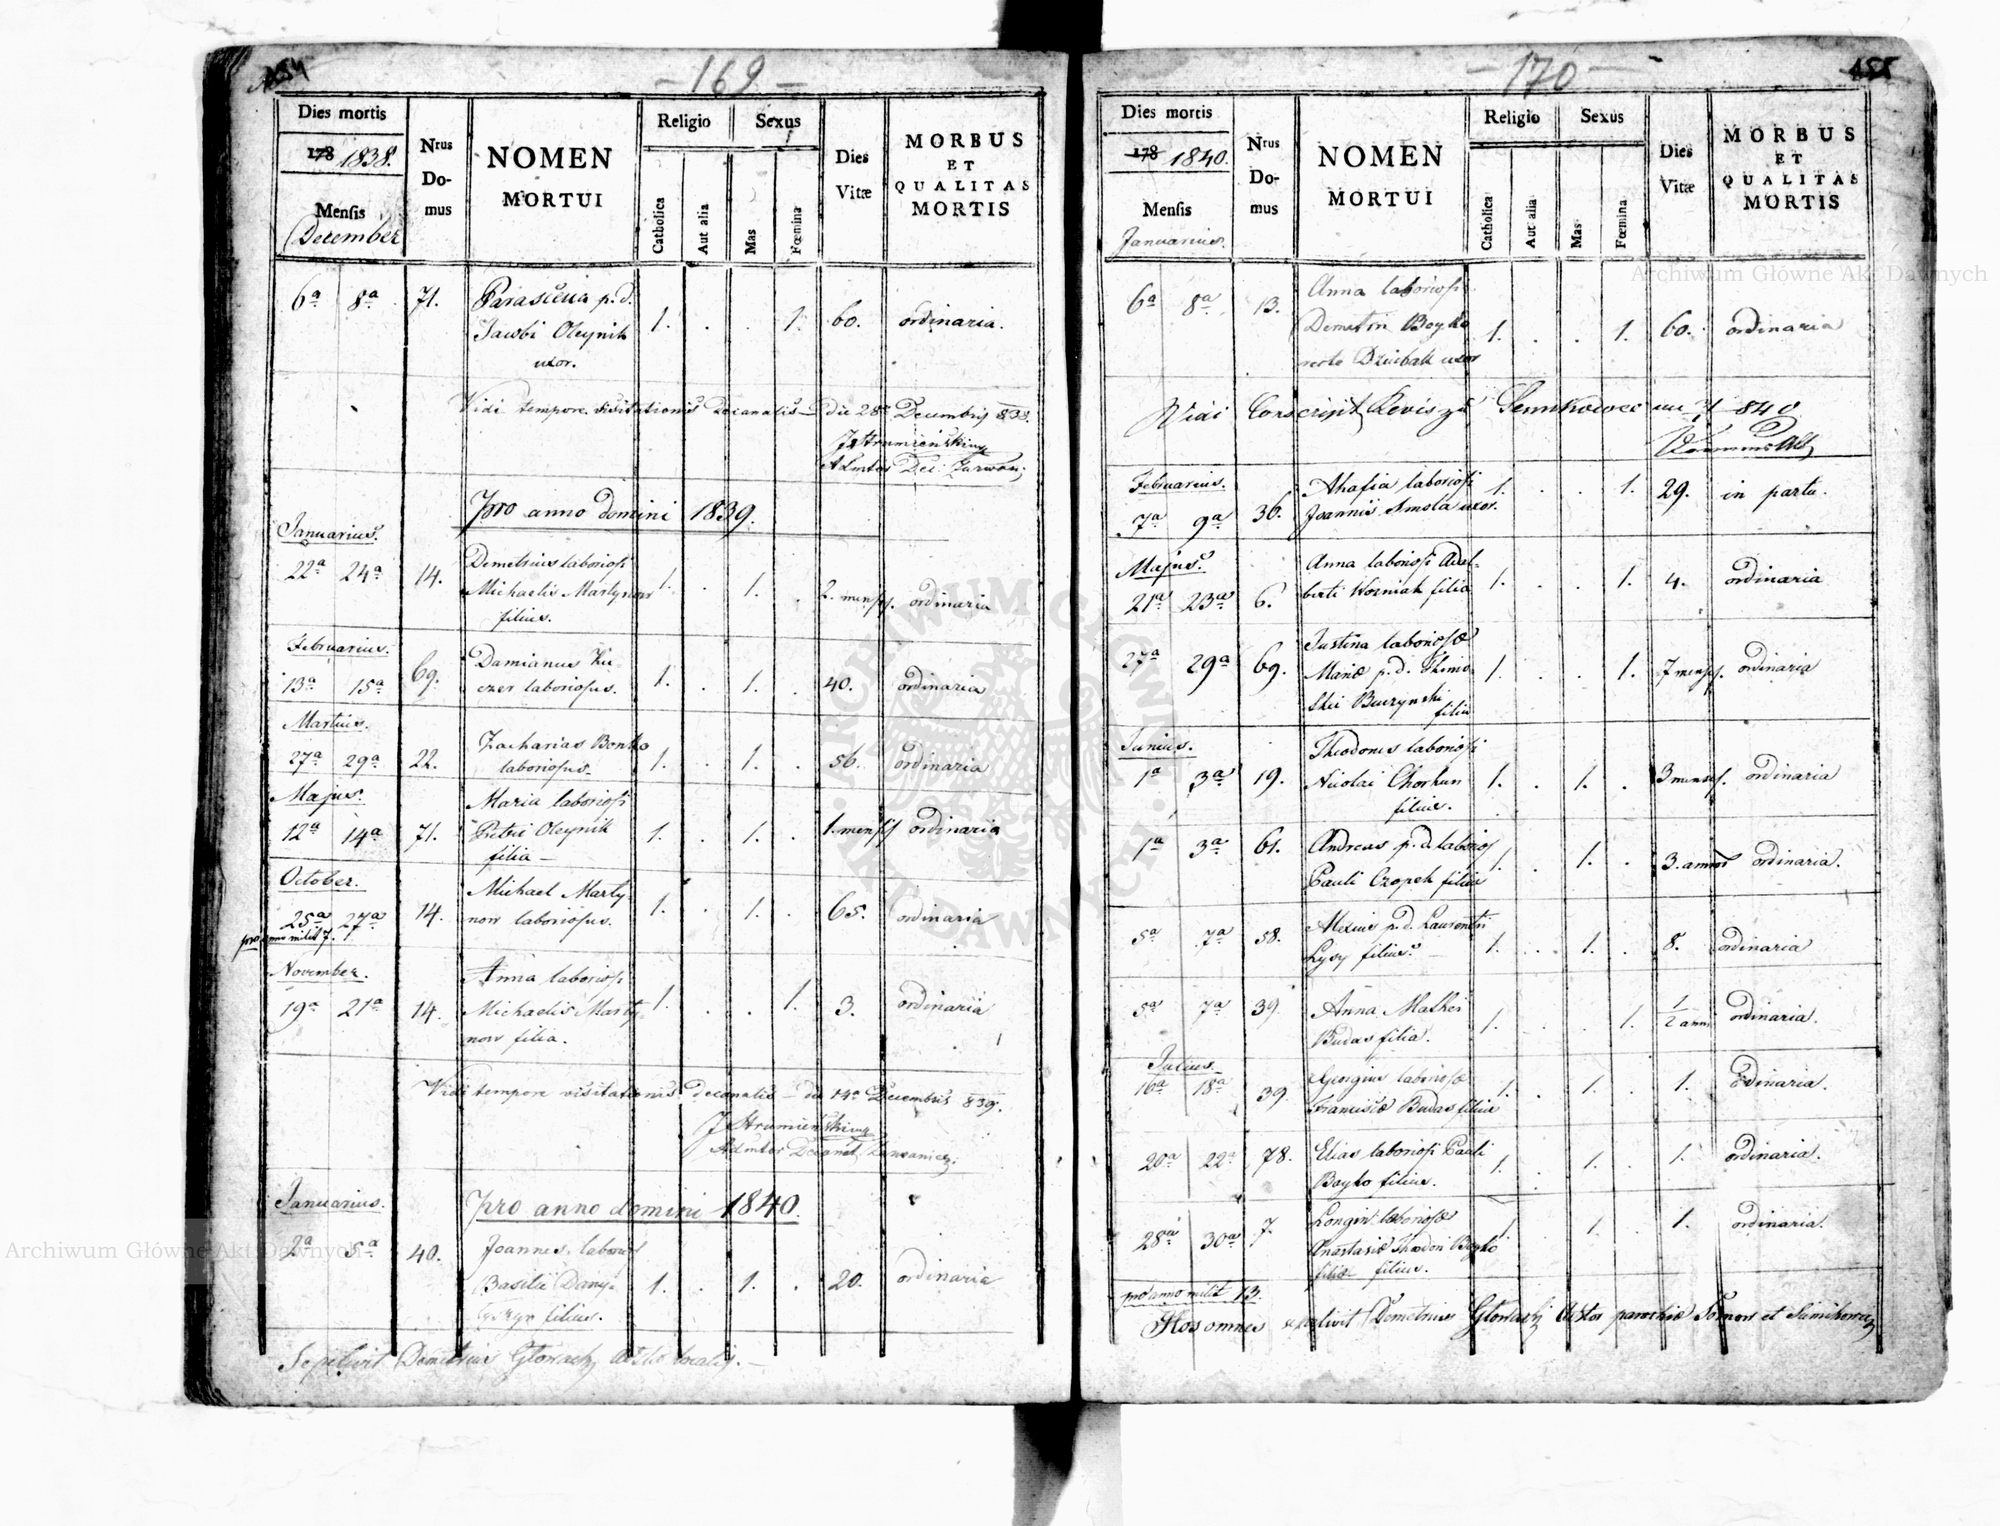 169
Dies mortis
178 1838.
Mensis
December
Nrus Domus
NOMEN
MORTUI
Religio
Catholica
Aut alia
Sexus
Mas
Fœmina
Dies Vitæ
MORBUS
ET
QUALITAS
MORTIS
6a 8a 71. Parascevia p. d.
Jacobi Oleynik 1. . . 1. 60. ordinaria.
uxor.
Vidi tempore visitationis decanalis die 28a Decembris 838.
Pro anno domini 1839.
Januarius.
22a 24a 14. Demetrius laboriosi
Michaelis Martynow 1. . 1. . 2. mensis. ordinaria
filius.
Februarius.
13a 15a 69. Damianus
laboriosus. 1. . 1. . 40. ordinaria
Martius.
27a 29a 22. Zacharias Bonko
laboriosus. 1. . 1. . 56. ordinaria
Majus.
12a 14a 71. Maria laboriosi
Petri Oleynik 1. . 1. . 1. mensis ordinaria
filia
October.
25a 27a 14. Michael Marty-
now laboriosus. 1. . 1. . 65. ordinaria
pro anno milit 7.
November.
19a 21a 14. Anna laboriosi
Michaelis Marty- 1. . . 1. 3. ordinaria
now filia.
Vidi tempore visitationis decanalis die 14a Decembris 839.
Januarius.
Pro anno domini 1840.
2a 5a 40. Joannes laboriosi
Basilii Dany- 1. . 1. . 20. ordinaria
filius.
Sepelivit Demetrius
170
Dies mortis
178 1840.
Mensis
Januarius.
Nrus Domus
NOMEN
MORTUI
Religio
Catholica
Aut alia
Sexus
Mas
Fœmina
Dies Vitæ
MORBUS
ET
QUALITAS
MORTIS
6a 8a 13. Anna laboriosi
Demetrii Boyko 1. . . 1. 60. ordinaria
recte Dziubak uxor
Februarius.
7a 9a 36. Ahafia laboriosi
Joannis Smola uxor. 1. . . 1. 29. in partu.
Majus.
21a 23a 6. Anna laboriosi Adal-
berti Wozniak filia 1. . . 1. 4. ordinaria
27a 29a 69. Justina laboriosæ
Mariæ p. d. 1. . . 1. 7 mensis. ordinaria
Buczynski
filia
Junius.
1a 3a 19. Theodorus laboriosi
Nicolai Chorkun 1. . 1. . 3 mensis. ordinaria
filius.
1a 3a 61. Andreas p. d. laboriosi
Pauli Czopek filius 1. . 1. . 3. annor ordinaria.
5a 7a 58. Alexius p. d. Laurentii
Lysy filius. 1. . 1. . 8. ordinaria
5a 7a 39. Anna Mathei
Budas filia. 1. . . 1. 1/2 anni ordinaria.
Julius.
16a 18a 39. Georgius laboriosæ
Franciscæ Budas filius 1. . 1. . 1. ordinaria.
20a 22a 78. Elias laboriosi Pauli
Boyko filius. 1. . 1. . 1. ordinaria.
28a 30a 7. Longin laboriosæ
Anastasiæ Theodori Boyko 1. . 1. . 1. ordinaria.
filiæ filius.
pro anno milit 13.
Hos omnes sepelivit Demetrius
Archiwum Główne Akt Dawnych
Archiwum Główne Akt Dawnych
ARCHIWUM GŁÓWNE · AKT DAWNYCH ·